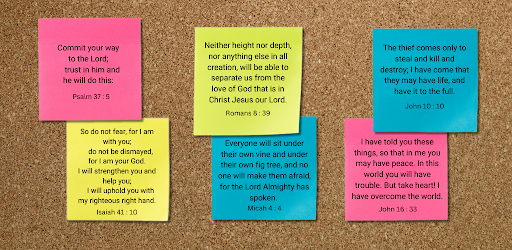 Commit your way
to the Lord;
trust in him and
he will do this:
Psalm 37 : 5
Neither height nor depth,
nor anything else in all
creation, will be able to
separate us from the
love of God that is in
Christ Jesus our Lord.
Romans 8 : 39
The thief comes only to
steal and kill and
destroy; I have come that
they may have life, and
have it to the full.
John 10 : 10
So do not fear, for I am
with you;
do not be dismayed,
for I am your God.
I will strengthen you and
help you;
I will uphold you with
my righteous right hand.
Isaiah 41 : 10
Everyone will sit under
their own vine and under
their own fig tree, and no
one will make them afraid,
for the Lord Almighty has
spoken.
Micah 4 : 4
I have told you these
things, so that in me you
may have peace. In this
world you will have
trouble. But take heart! I
have overcome the world.
John 16 : 33